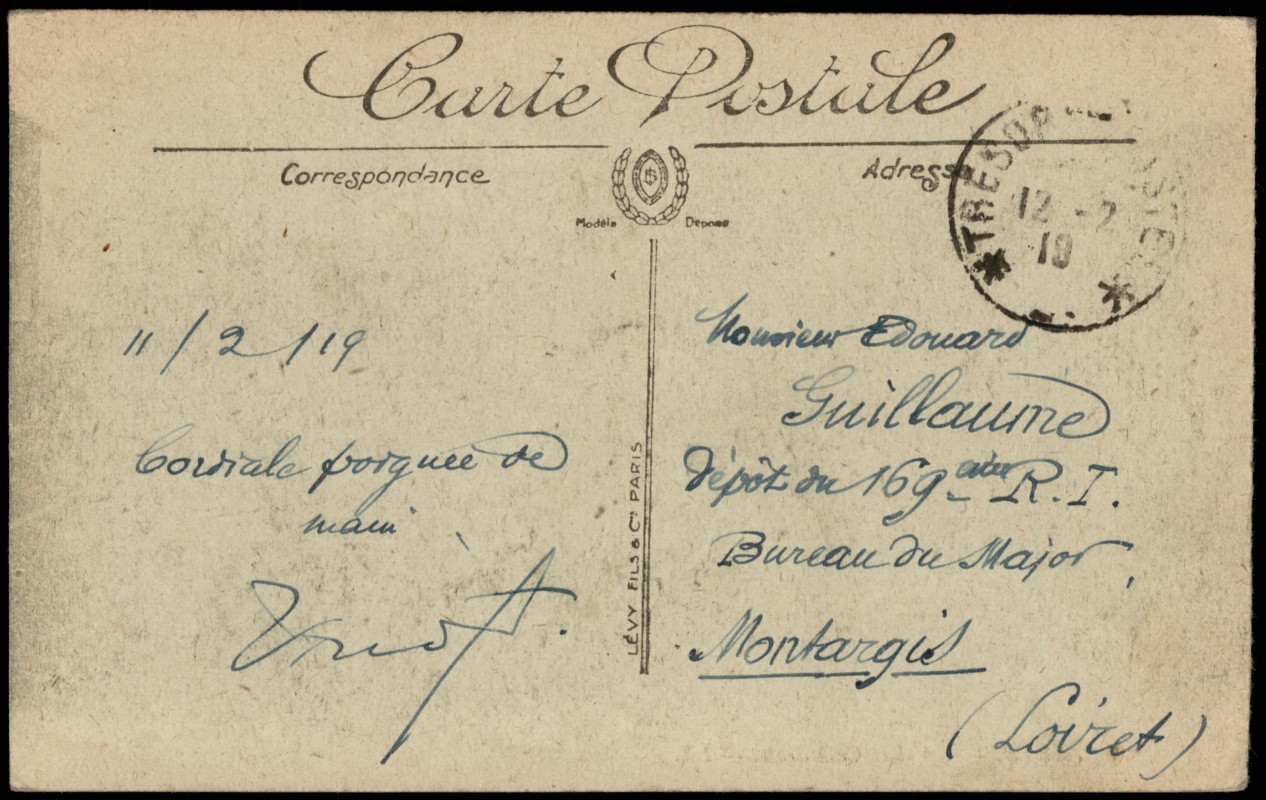 Carte Postale
Correspondance
Adresse
Modèle Déposé
* TRESOR POSTES *
12 - 2
19
11/2/19
Cordiale poignée de
main
Monsieur Edouard
Guillaume
Dépôt du 169ème R.I.
Bureau du Major,
Montargis
(Loiret)
LÉVY FILS & Cie PARIS